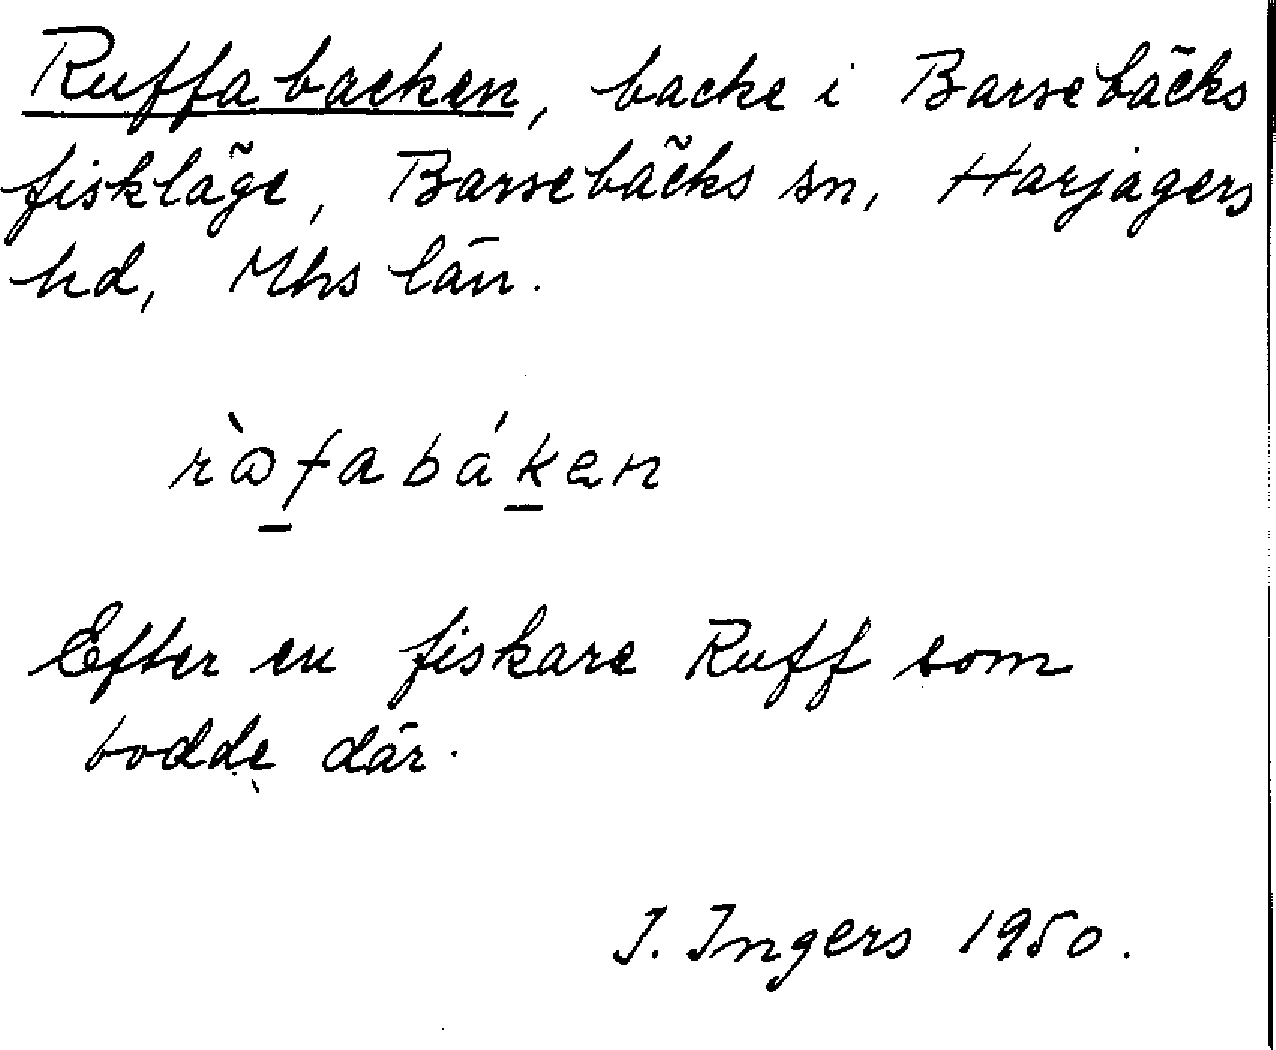 Ruffabacken, backe i Barsebäcks
fiskläge, Barsebäcks sn, Harjagers
hd, Mhs län.
Efter en fiskare Ruff som
bodde där.
I. Ingers 1950.